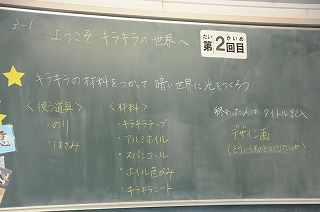 3-1
ようこそ キラキラの世界へ
だい かいめ
第2回目
キラキラの材料をつかって 暗い世界に光をつくろう
<使う道具>
・のり
・はさみ
<材料>
・キラキラテープ
・アルミホイル
・スパンコール
・ホイル色がみ
・キラキラシート
終わった人は タイトル記入
デザイン画
(どういうものをつくりたいか)